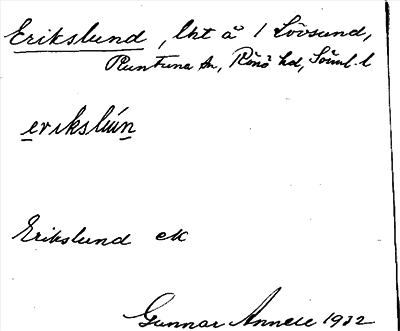 Erikslund, lht å 1 Lövsund,
Runtuna sn, Rönö hd, Söml. l
eriksliún
Erikslund ek
Gunnar Annell 1932